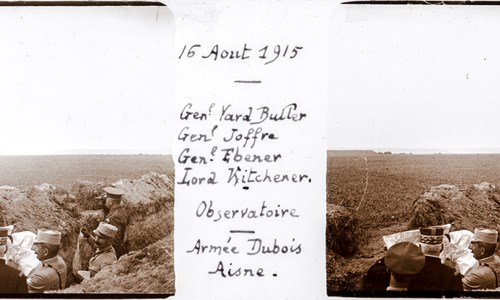 16 Aout 1915
Genl Yard Buller
Genl Joffre
Genl Ebener
Lord Kitchener.
Observatoire
Armée Dubois
Aisne.